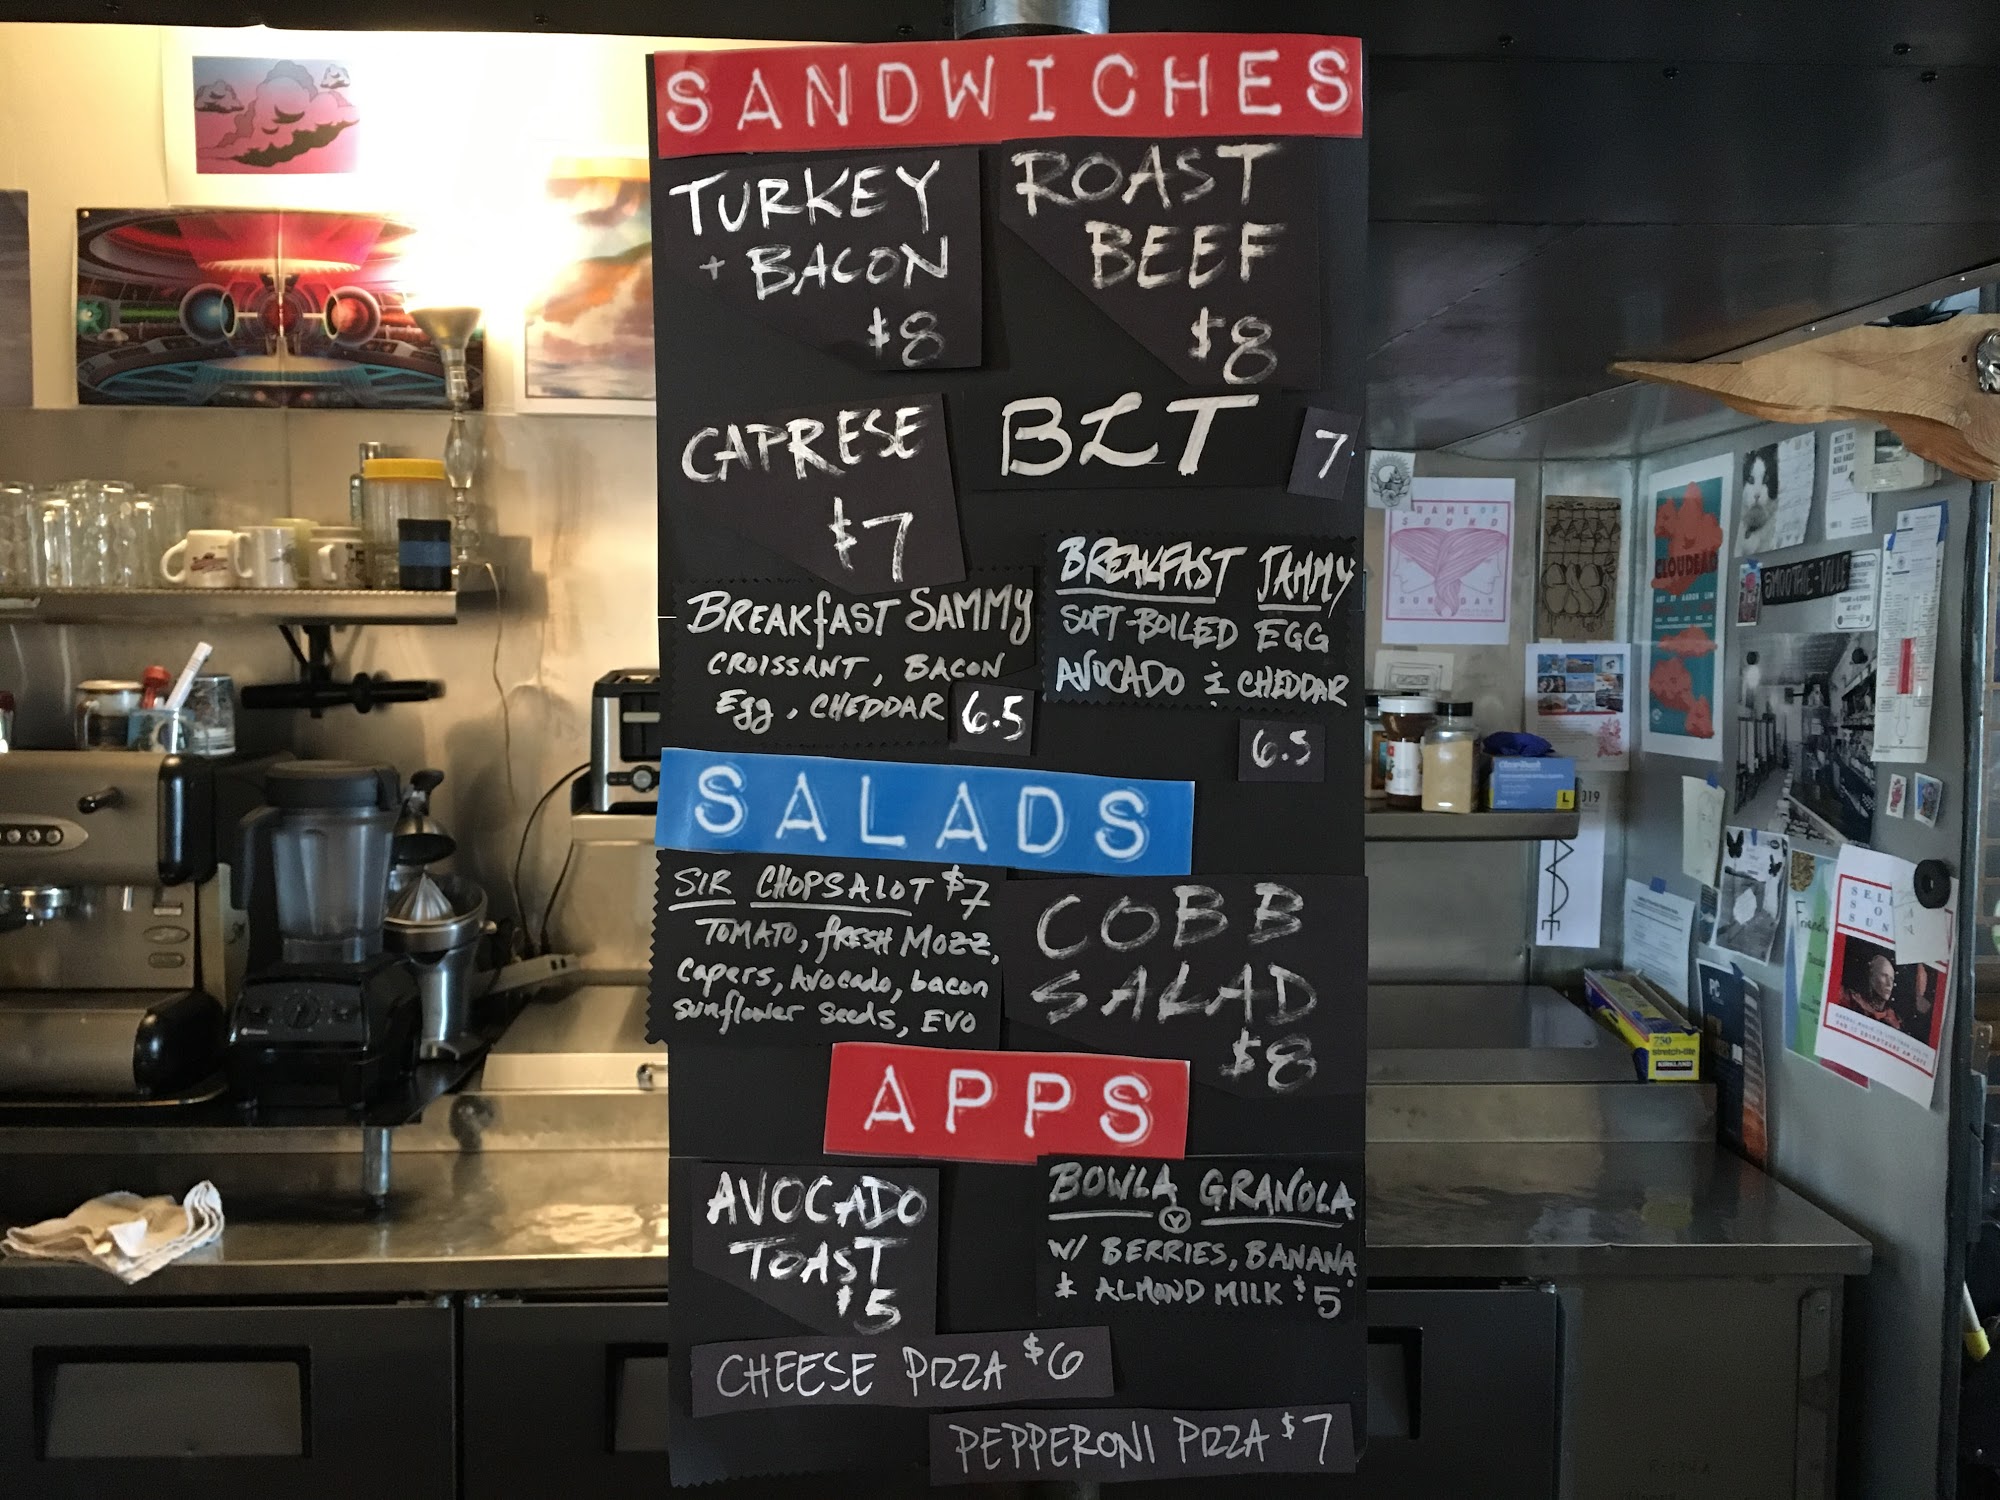 SANDWICHES
TURKEY
+ BACON
$8
ROAST
BEEF
$8
CAPRESE
$7
BLT
7
BREAKFAST SAMMY
CROISSANT, BACON
Egg, CHEDDAR
6.5
BREAKFAST JAMMY
SOFT-BOILED EGG
AVOCADO & CHEDDAR
6.5
SALADS
SIR CHOPSALOT $7
TOMATO, FRESH MOZZ,
Capers, Avocado, bacon
sunflower seeds, EVO
COBB
SALAD
$8
APPS
AVOCADO
TOAST
$5
BOWLA GRANOLA
V
W/ BERRIES, BANANA
& ALMOND MILK $5
CHEESE PIZZA $6
PEPPERONI PIZZA $7
SOUND
SUNDAY
CLOUDEAD
SMOOTHIE-VILLE
L
319
750
stretch-tite
SELF
SO
SUN
PC